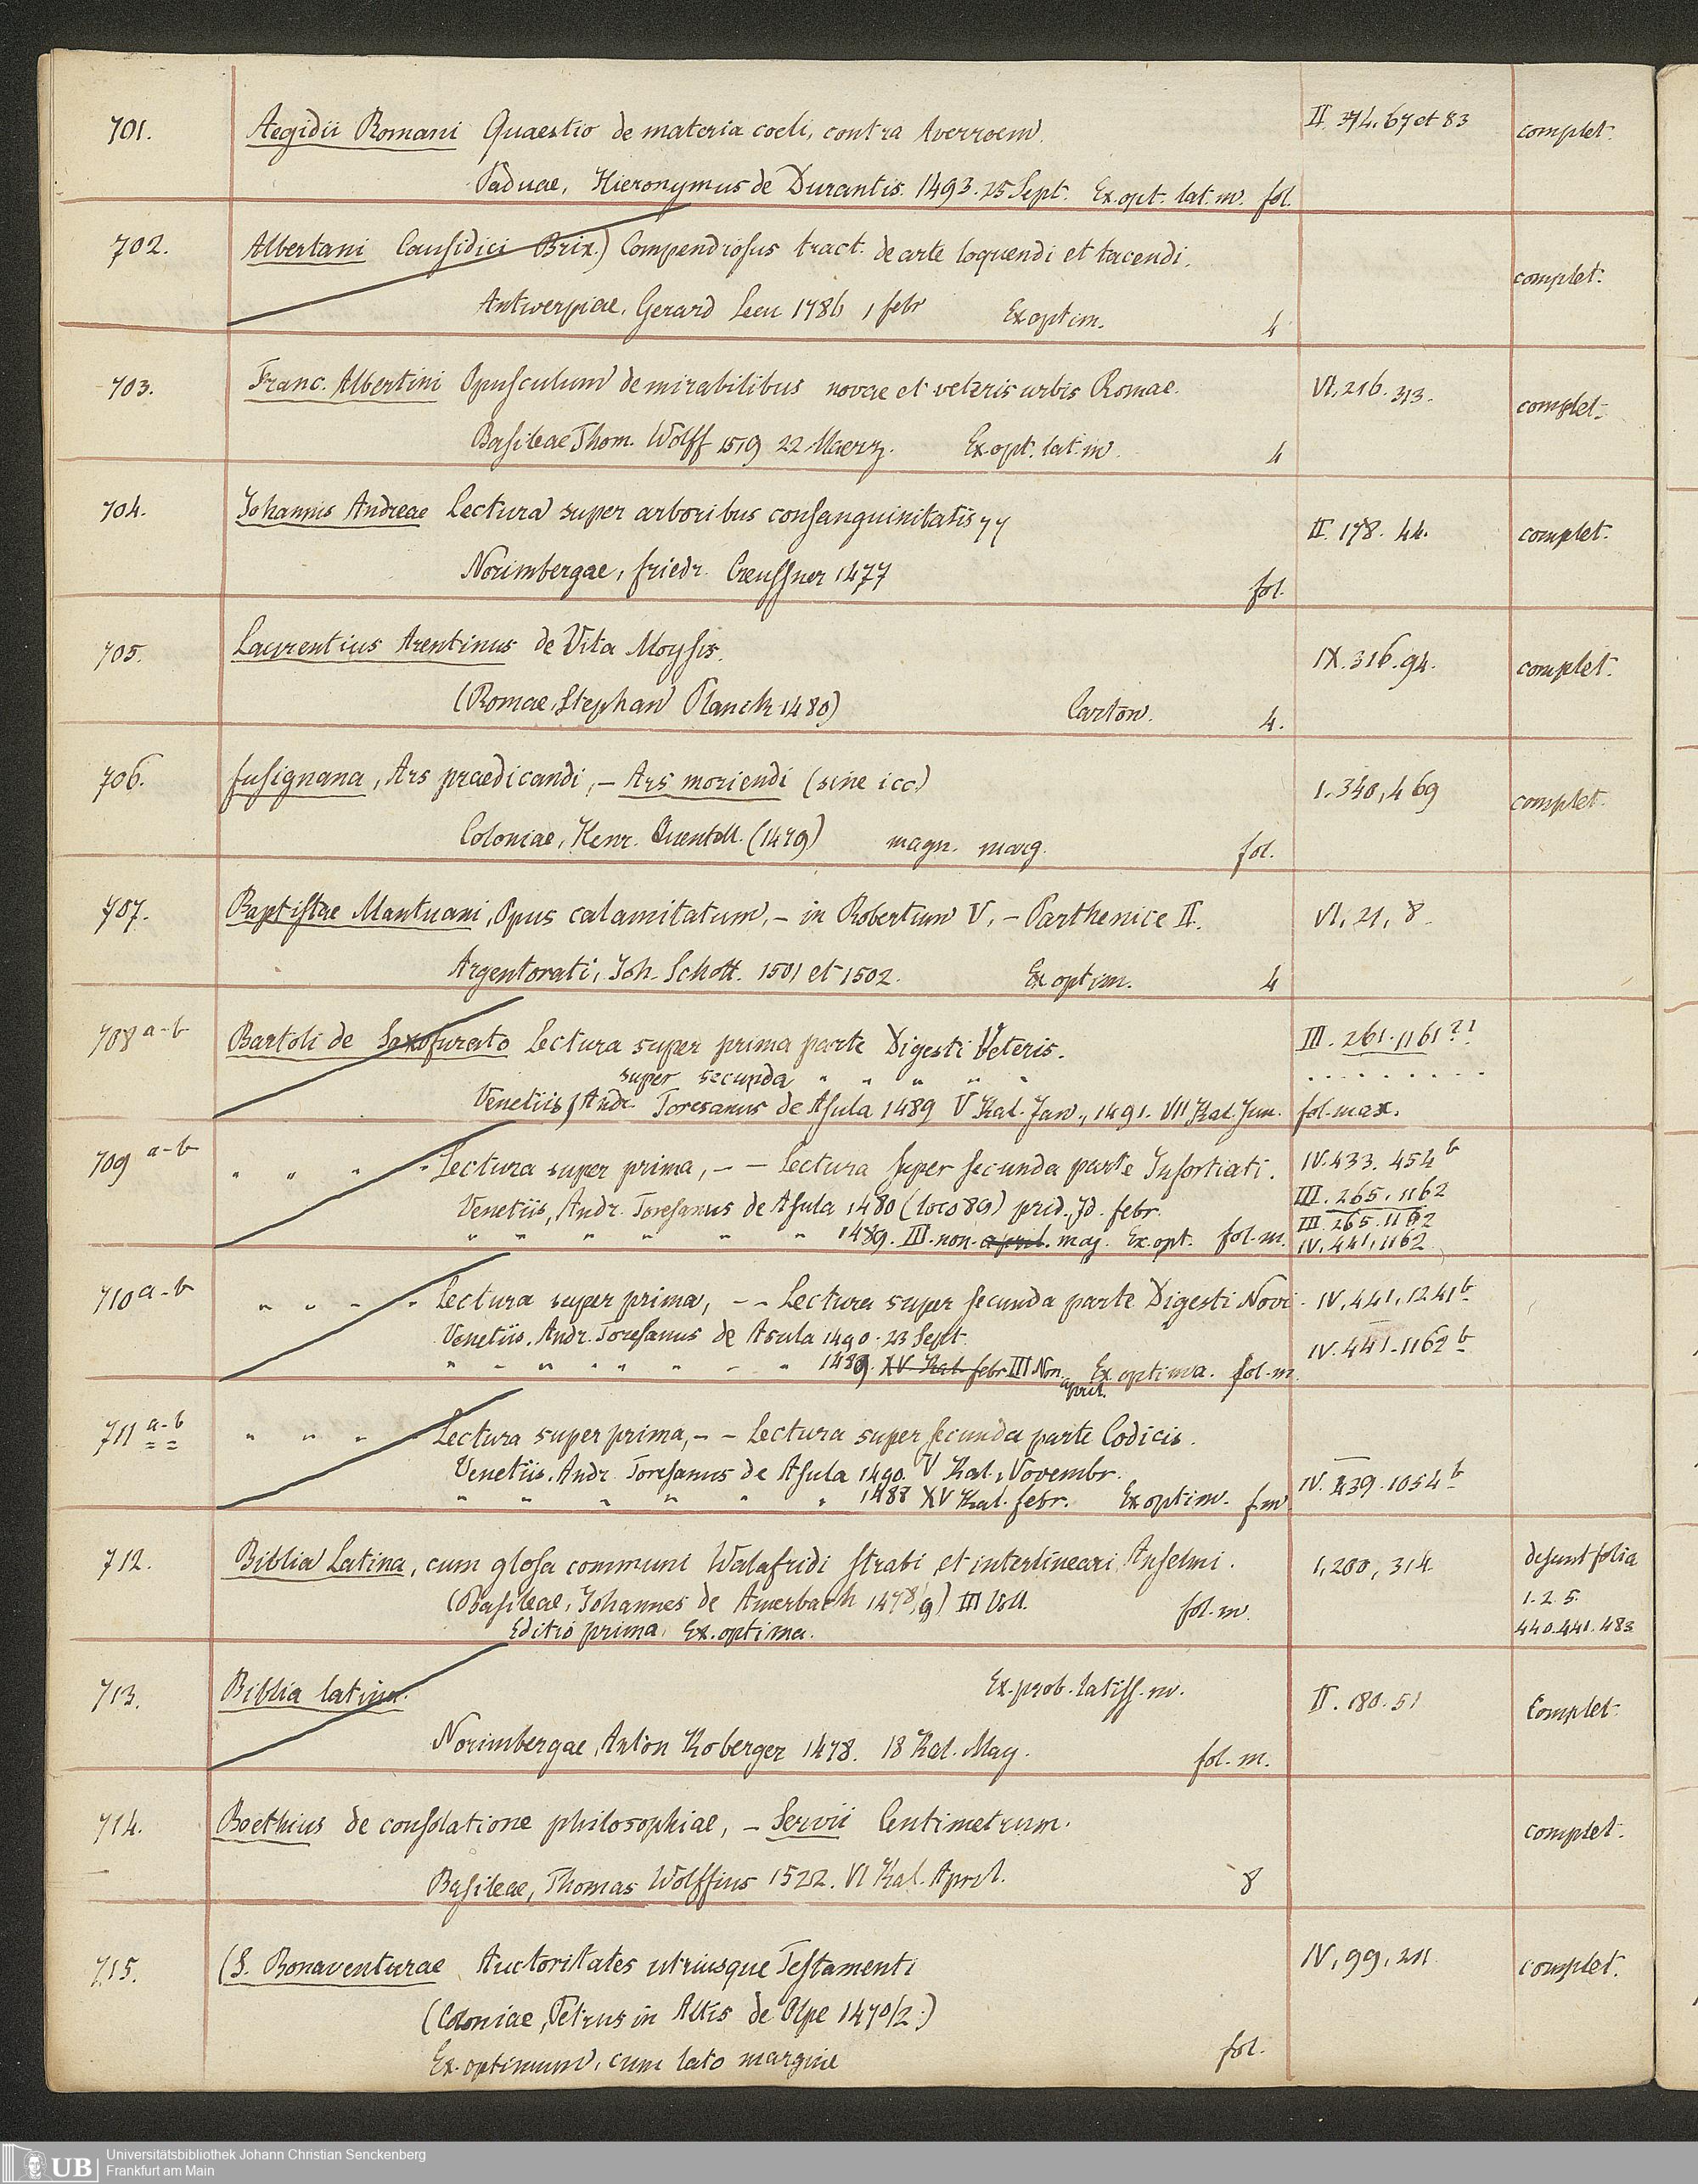 701. Aegidii Romani Quaestio de materia coeli, contra Averroem. II. 374. 67 et 83 complet.
Paduae, Hieronymus de Durantis. 1493. 25 Sept. Ex. opt. lat. m. fol.
702. Albertani Causidici Brix.) Compendiosus tract. de arte loquendi et tacendi. complet.
Antwerpiae. Gerard Leeu 1486 1 febr Ex optim. 4
703. Franc. Albertini Opusculum de mirabilibus novae et veteris urbis Romae. VI, 216. 313. complet.
Basileae Thom. Wolff 1519 22 Maerz. Ex opt. lat. m. 4
704. Johannis Andreae Lectura super arboribus consanguinitatis II. 178. 44. complet.
Norimbergae, friedr. Creussner 1477 fol.
705. Laurentius Arentinus de Vita Moysis. IX. 316. 94. complet.
(Romae, Stephan Planck 1480) Carton. 4.
706. fusignana, Ars praedicandi, – Ars moriendi (sine icc.) I. 340, 469 complet.
Coloniae, Henr. Quentell. (1479) magn. marg. fol.
707. Baptistae Mantuani, Opus calamitatum, – in Robertum V, – Parthenice II. VI, 21, 8.
Argentorati, Joh. Schott. 1501 et 1502. Ex optim. 4
708 a-b Bartoli de Saxofurato Lectura super prima parte Digesti Veteris. III. 261. 1161 ?!
super secunda " " " " "
Venetiis, Andr. Toresanus de Asula 1489 V Kal. Jan., 1491. VII Kal. Jun. fol. max.
709 a-b " " " " Lectura super prima, – – Lectura super secunda parte Infortiati. IV. 433. 454 b
Venetiis, Andr. Toresanus de Asula 1480 (loco 89) prid. Id. febr. III. 265. 1162
" " " " " " 1489. III. non. april. maj. Ex. opt. fol. m. III. 265. 1162
IV. 441, 1162
710 a-b " " " " Lectura super prima, – – Lectura super secunda parte Digesti Novi. IV, 441, 1241 b
Venetiis. Andr. Toresanus de Asula 1490. 23 Sept.
" " " " " " " " 1489. XV Kal. febr. III Non. april. Ex optima. fol. m. IV. 441. 1162 b
711 a-b " " " " Lectura super prima, – – Lectura super secunda parte Codicis.
Venetiis. Andr. Toresanus de Asula 1490. V Kal. Novembr.
" " " " " " 1488 XV Kal. febr. Ex optim. f. m IV. 439. 1054 b
712. Biblia Latina, cum glosa communi Walafridi Strabi et interlineari Anselmi. I, 200, 314 desunt folia
(Basileae, Johannes de Amerbach 1478/9) III Voll. fol. m. 1. 2. 5.
Editio prima. Ex. optima. 440. 441. 483
713. Biblia latina. Ex. prob. latiss. m. II. 180. 51 Complet.
Norimbergae, Anton Koberger 1478. 18 Kal. May. fol. m.
714. Boethius de consolatione philosophiae, – Servii Centimetrum. complet.
Basileae, Thomas Wolffius 1522. VI Kal. April. 8
715. (S. Bonaventurae Auctoritates utriusque Testamenti IV, 99, 211 complet.
(Coloniae, Petrus in Altis de Olpe 1470/2.)
Ex. optimum, cum lato margine fol.
UB Universitätsbibliothek Johann Christian Senckenberg
Frankfurt am Main